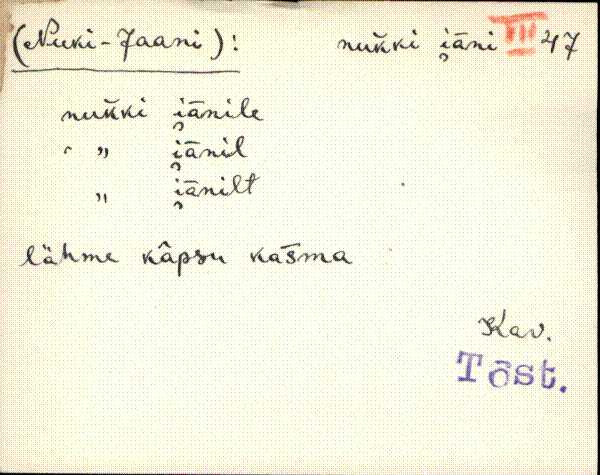 (Nuki-Jaani): nuk̆ki i̯äni III 47
nuk̆ki i̯änile
" i̯änil
" i̯änilt
lähme kâpsu kas̄ma
Kav.
Tõst.